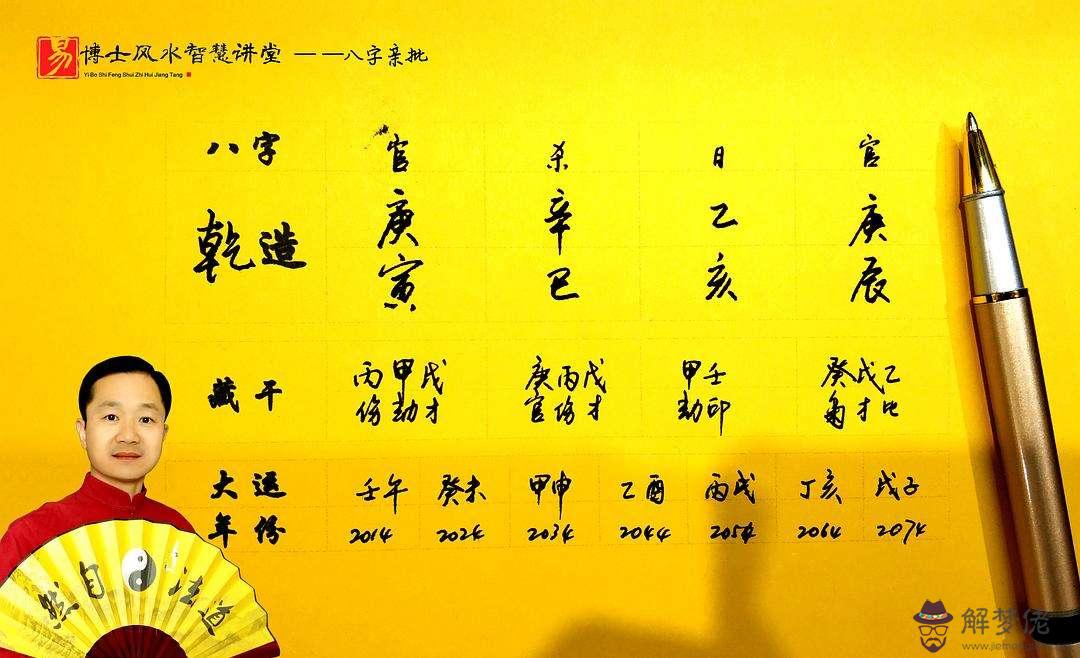 易 博士风水智慧讲堂 ——八字亲批
Yi Bo Shi Feng Shui Zhi Hui Jiang Tang
八字 官 杀 日 官
乾造 庚 辛 乙 庚
寅 巳 亥 辰
藏干 丙甲戊 庚丙戊 甲壬 癸戊乙
伤劫才 官伤才 劫印 才比
大运 壬午 癸未 甲申 乙酉 丙戌 丁亥 戊子
年份 2014 2024 2034 2044 2054 2064 2074
然自法道
解梦佬